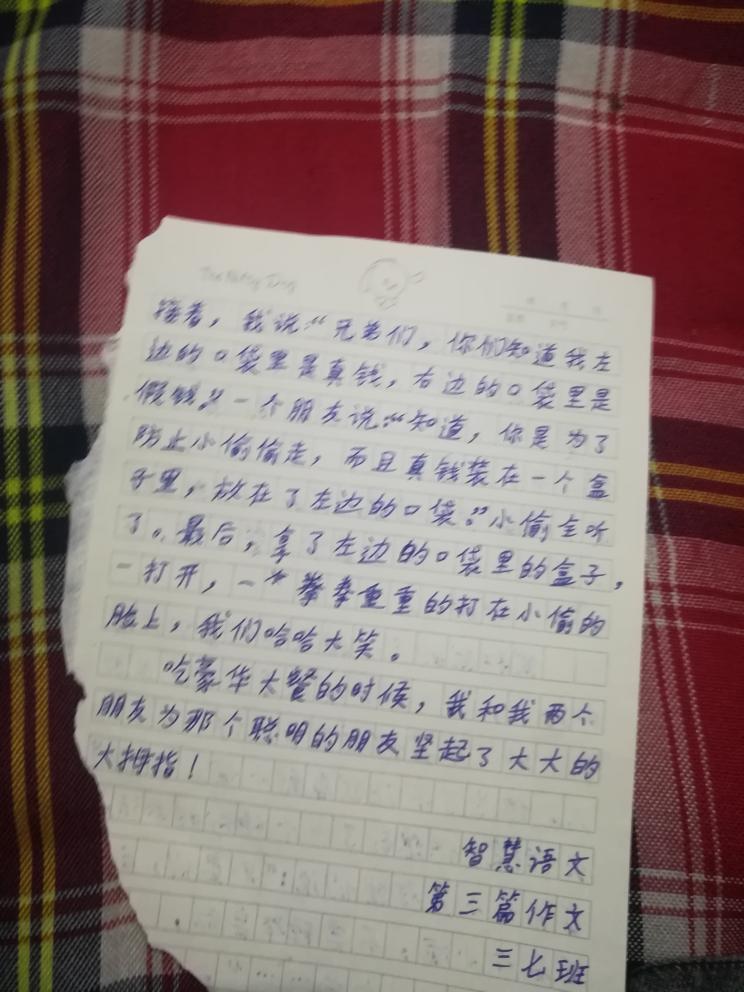 接着，我说“兄弟们，你们知道我左
边的口袋里是真钱，右边的口袋里是
假钱”一个朋友说“知道，你是为了
防止小偷偷走，而且真钱装在一个盒
子里，放在了左边的口袋。”小偷全听
了。最后，拿了左边的口袋里的盒子，
一打开，一个拳拳重重的打在小偷的
脸上，我们哈哈大笑。
吃豪华大餐的时候，我和我两个
朋友为那个聪明的朋友竖起了大大的
大拇指！
智慧语文
第三篇作文
三七班